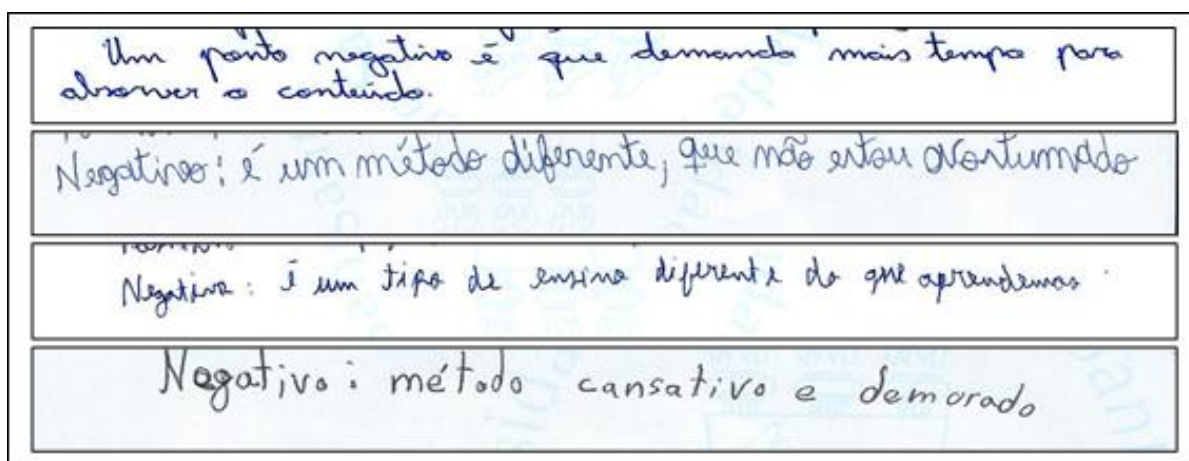 Um ponto negativo é que demanda mais tempo para
absorver o conteúdo.
Negativo: é um método diferente, que não estou acostumado
Negativo: é um tipo de ensino diferente do que aprendemos.
Negativo: método cansativo e demorado